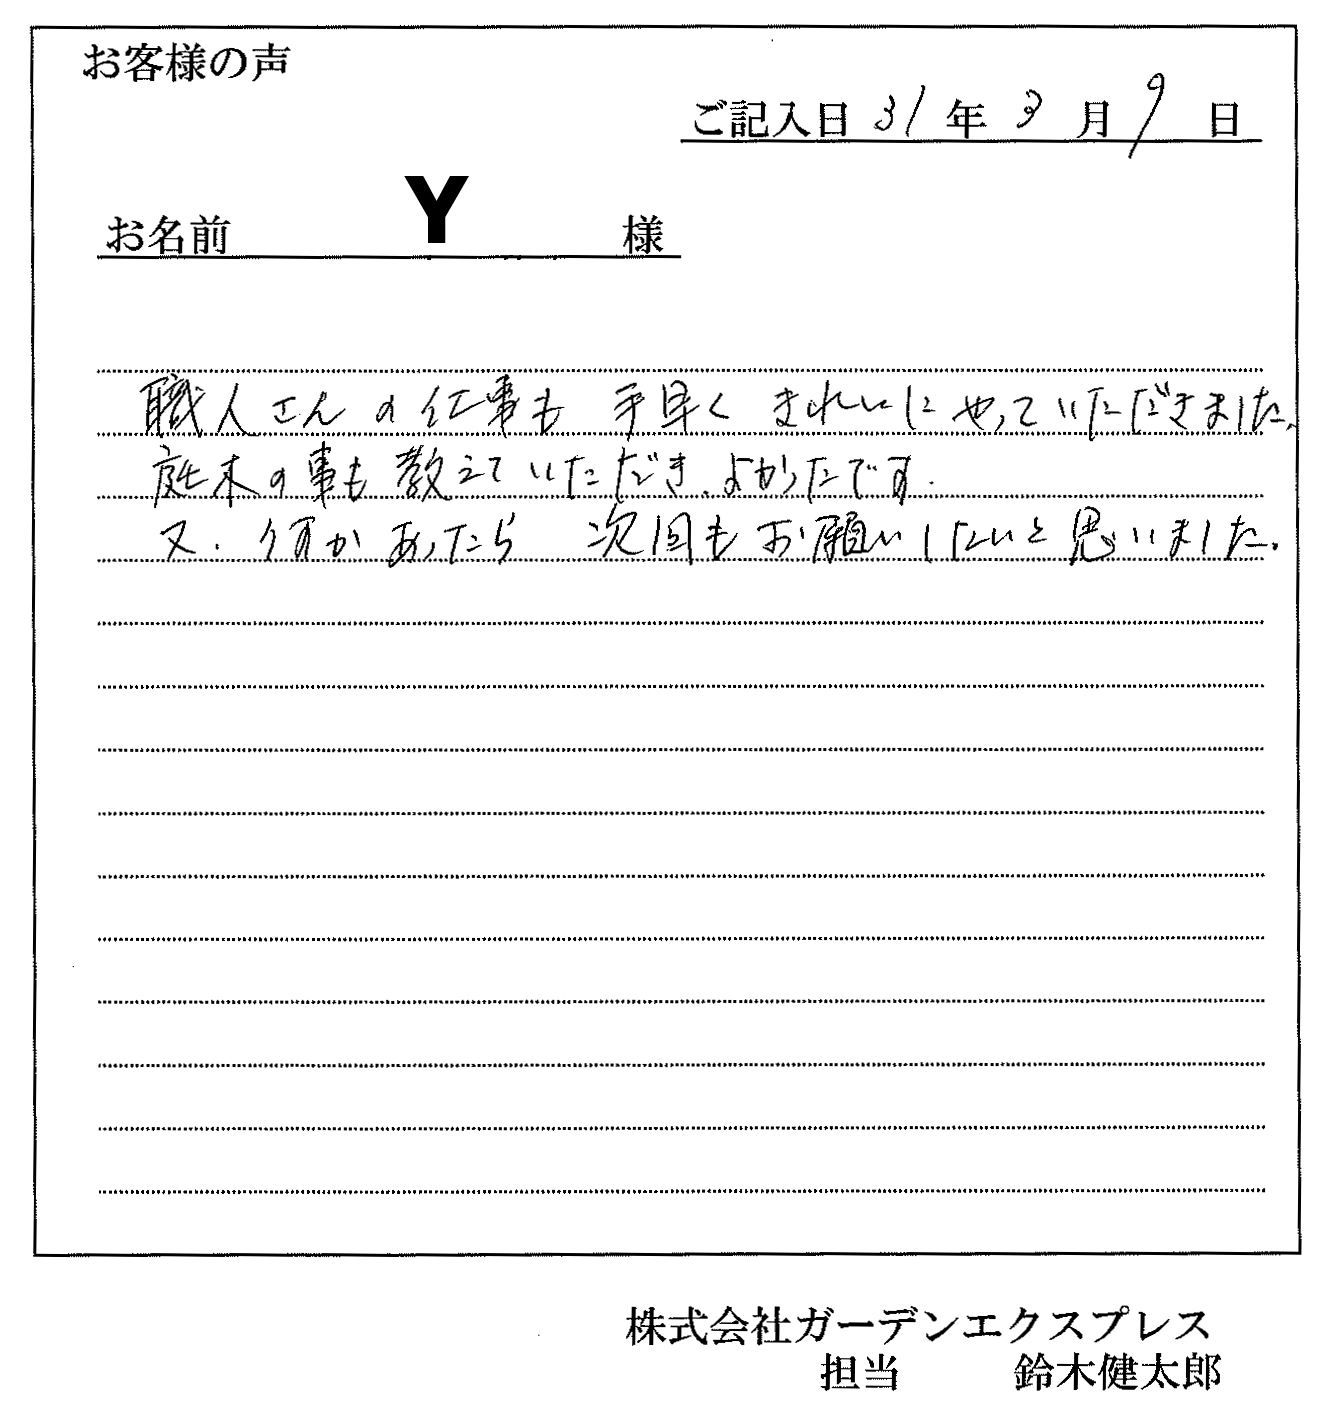 お客様の声
ご記入日 31年3月9日
お名前 Y 様
職人さんの仕事も 手早く きれいにやっていただきました。
庭木の事も教えていただき、よかったです。
又、何かあったら 次回もお願いしたいと思いました。
株式会社ガーデンエクスプレス
担当 鈴木健太郎